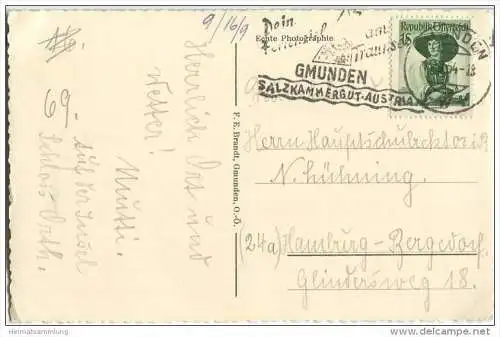 9/16/9
Dein
Ferienziel
am
Traunsee
GMUNDEN
SALZKAMMERGUT-AUSTRIA
Republik Österreich
Echte Photographie
Herrlich Ort und
Wetter!
Mutti.
69.-
Auf der Insel
Schloss Orth.
F. E. Brandt, Gmunden, O.-Ö.
Herrn Hauptschulrektor i.R.
N. Lühning.
(24a) Hamburg-Bergedorf.
Glindersweg 18.
Heimatsammlung
www.delcampe.net